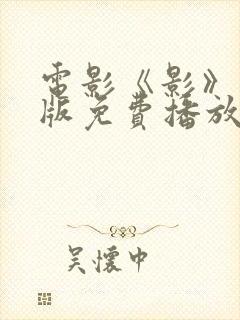 電影《影》
版免費播放
吴懷中